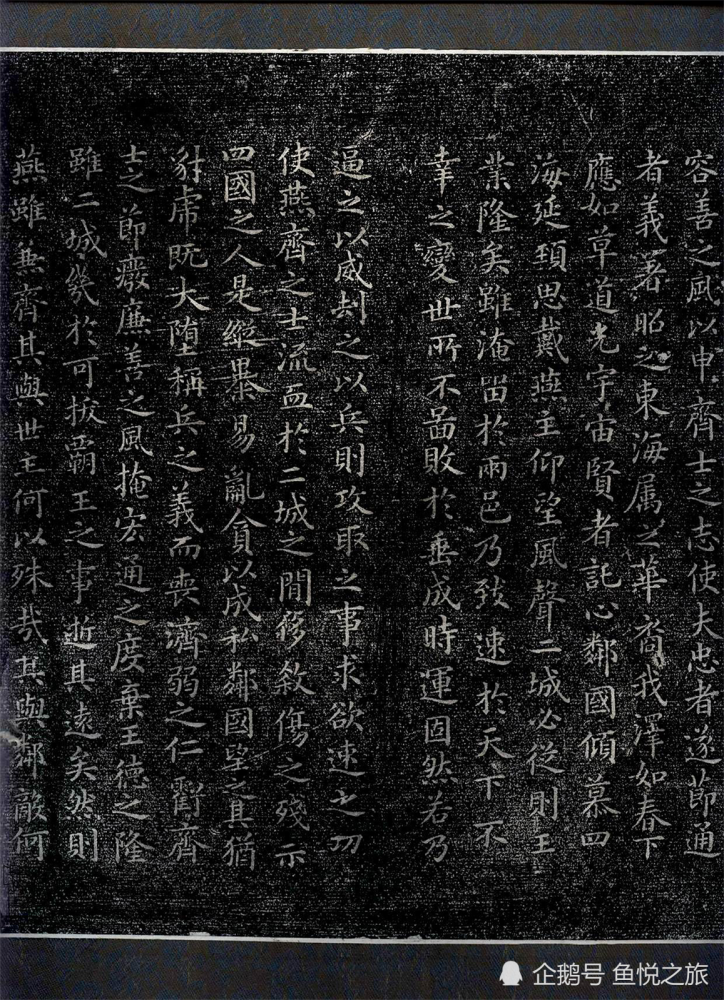 容善之風以申齊士之志使夫忠者遂節通
者義著昭之東海属之華裔我澤如春下
應如草道光宇宙賢者託心鄰國傾慕四
海延頸思戴燕主仰望風聲二城必從則王
業隆矣雖淹留於兩邑乃致速於天下不
幸之變世所不啚敗於垂成時運固然若乃
逼之以威刧之以兵則攻取之事求欲速之功
使燕齊之士流血於二城之間侈殺傷之殘示
四國之人是縱暴易亂貪以成私鄰國望之其猶
豺虎既大堕稱兵之義而喪濟弱之仁虧齊
士之節癈廉善之風掩宏通之度棄王德之隆
雖二城幾於可拔覇王之事逝其遠矣然則
燕雖兼齊其與世主何以殊哉其與鄰敵何
企鹅号 鱼悦之旅